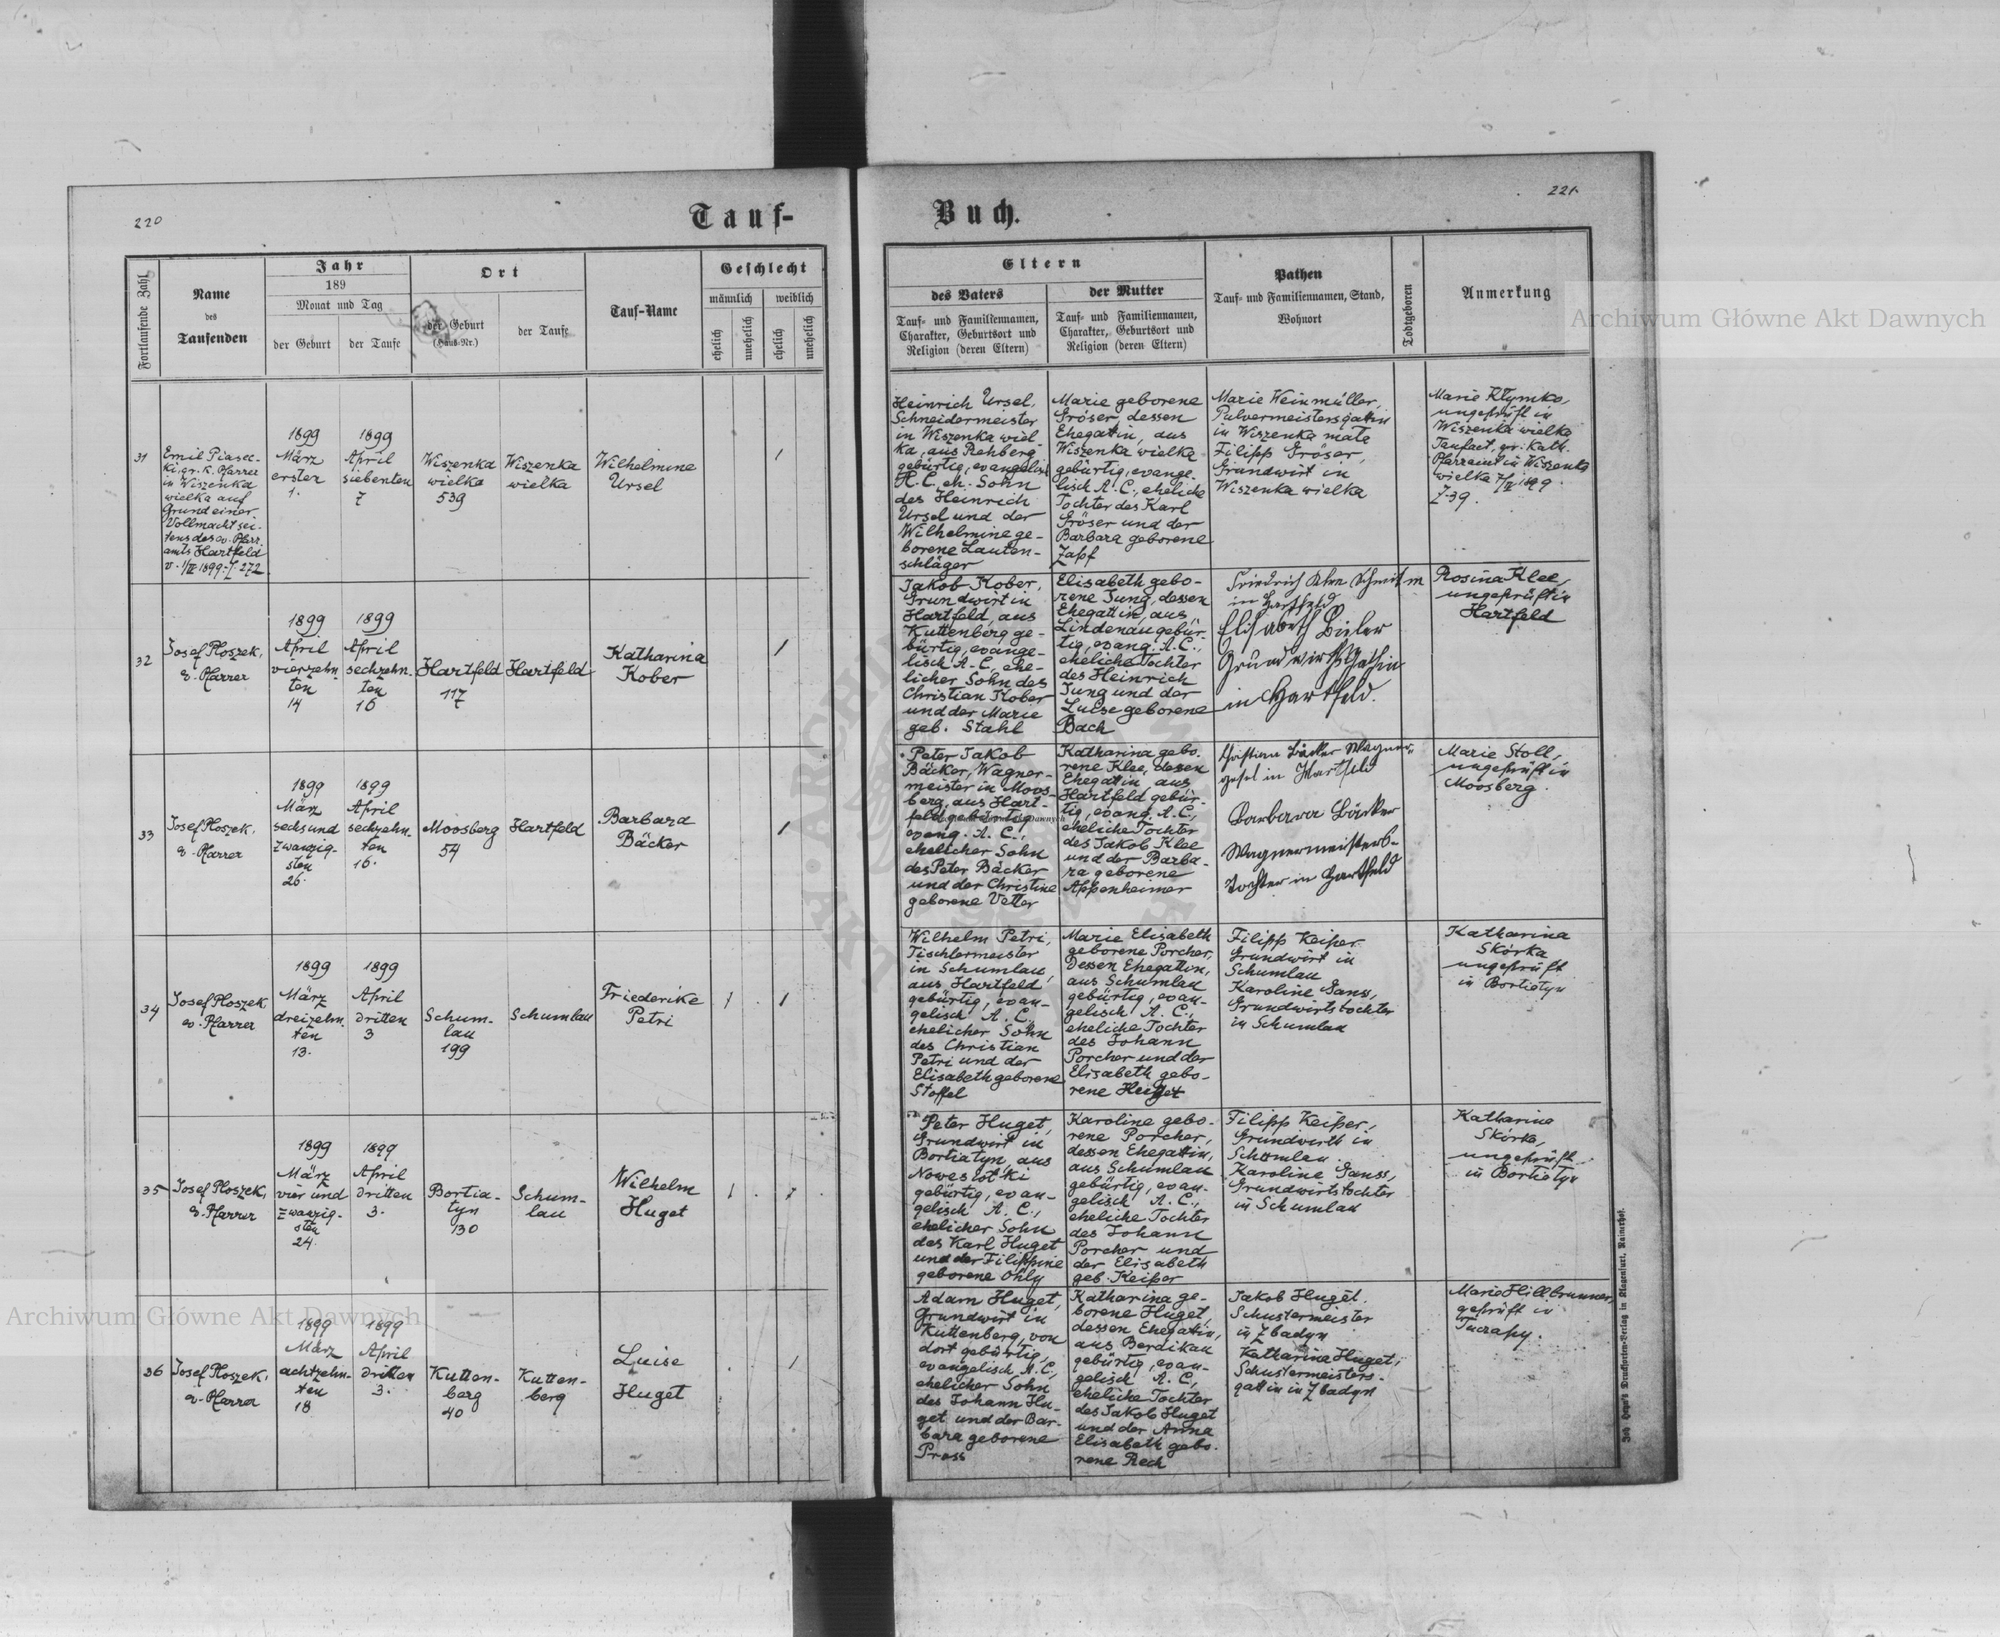 220
Tauf-
Fortlaufende Zahl
Name
des
Taufenden
Jahr
189
Monat und Tag
der Geburt
der Taufe
Ort
der Geburt
(Haus-Nr.)
der Taufe
Tauf-Name
Geschlecht
männlich
weiblich
ehelich
unehelich
ehelich
unehelich
31
Emil Piasec-
ki, gr. k. Pfarrer
in Wiszenka
wielka auf
Grund einer
Vollmacht sei-
tens des ev. Pfarr-
amts Hartfeld
v. 1/IV 1899 Z. 272
1899
März
erster
1.
1899
April
siebenten
7
Wiszenka
wielka
539
Wiszenka
wielka
Wilhelmine
Ursel
1
32
Josef Ploszek,
ev. Pfarrer
1899
April
vierzehn
ten
14
1899
April
sechzehn-
ten
16
Hartfeld
117
Hartfeld
Katharina
Kober
1
33
Josef Ploszek,
ev. Pfarrer
1899
März
sechsund
zwanzig-
sten
26.
1899
April
sechzehn-
ten
16.
Moosberg
54
Hartfeld
Barbara
Bäcker
1
34
Josef Ploszek
ev. Pfarrer
1899
März
dreizehn-
ten
13.
1899
April
dritten
3
Schum-
lau
199
Schumlau
Friederike
Petri
1
1
35
Josef Ploszek,
ev. Pfarrer
1899
März
vier und
zwanzig-
sten
24.
1899
April
dritten
3.
Bortia-
tyn
130
Schum-
lau
Wilhelm
Huget
1
1
36
Josef Ploszek,
ev. Pfarrer
1899
März
achtzehn-
ten
18
1899
April
dritten
3.
Kutten-
berg
40
Kutten-
berg
Luise
Huget
1
221.
Buch.
Eltern
des Vaters
Tauf- und Familiennamen,
Charakter, Geburtsort und
Religion (deren Eltern)
der Mutter
Tauf- und Familiennamen,
Charakter, Geburtsort und
Religion (deren Eltern)
Pathen
Tauf- und Familiennamen, Stand,
Wohnort
Todtgeboren
Anmerkung
Heinrich Ursel,
Schneidermeister
in Wiszenka wiel-
ka, aus Rehberg
gebürtig, evangelisch
A. C. eh. Sohn
des Heinrich
Ursel und der
Wilhelmine ge-
borene Lauten-
schläger
Marie geborene
Gröser, dessen
Ehegattin, aus
Wiszenka wielka
gebürtig, evange-
lisch A. C., eheliche
Tochter des Karl
Gröser und der
Barbara geborene
Zapf
Marie Weinmüller,
Pulvermeistersgattin
in Wiszenka mała
Filipp Gröser,
Grundwirt in
Wiszenka wielka
Marie Klymko,
ungeprüft in
Wiszenka wielka
Taufact, gr. kath.
Pfarramt in Wiszenka
wielka 7/IV 1899.
Z-39.
Jakob Kober,
Grundwirt in
Hartfeld, aus
Kuttenberg ge-
bürtig, evange-
lisch A. C., ehe-
licher Sohn des
Christian Kober
und der Marie
geb. Stahl
Elisabeth gebo-
rene Jung, dessen
Ehegattin, aus
Lindenau gebür-
tig, evang. A. C.,
eheliche Tochter
des Heinrich
Jung und der
Luise geborene
Bach
in Hartfeld
Elisabeth Bieler
Grundwirths Gattin
in Hartfeld.
Rosina Klee,
ungeprüft in
Hartfeld
Peter Jakob
Bäcker, Wagner-
meister in Moos-
berg, aus Hart-
feld gebürtig
evang. A. C.,
ehelicher Sohn
des Peter Bäcker
und der Christine
geborene Vetter
Katharina gebo-
rene Klee, dessen
Ehegattin aus
Hartfeld gebür-
tig, evang. A. C.,
eheliche Tochter
des Jakob Klee
und der Barba-
ra geborene
Appenheimer
Christian Bäcker Wagner-
gesel in Hartfeld
Barbara Bäcker
Wagnermeisters-
Tochter in Hartfeld
Marie Stoll,
ungeprüft in
Moosberg.
Wilhelm Petri,
Tischlermeister
in Schumlau,
aus Hartfeld
gebürtig, evan-
gelisch A. C.,
ehelicher Sohn
des Christian
Petri und der
Elisabeth geborene
Stoffel
Marie Elisabeth
geborene Porcher,
dessen Ehegattin,
aus Schumlau
gebürtig, evan-
gelisch A. C.,
eheliche Tochter
des Johann
Porcher und der
Elisabeth gebo-
rene
Filipp Keiper
Grundwirt in
Schumlau
Karoline Ganss,
Grundwirtstochter
in Schumlau
Katharina
Skórka
ungeprüft
in Bortiatyn
Peter Huget,
Grundwirt in
Bortiatyn, aus
Nowesiołki
gebürtig, evan-
gelisch A. C.,
ehelicher Sohn
des Karl Huget
und der Filippine
geborene Ohly
Karoline gebo-
rene Porcher,
dessen Ehegattin,
aus Schumlau
gebürtig, evan-
gelisch A. C.,
eheliche Tochter
des Johann
Porcher und
der Elisabeth
geb. Keiper
Filipp Keiper,
Grundwirth in
Schumlau.
Karoline Ganss,
Grundwirtstochter
in Schumlau
Katharina
Skórka,
ungeprüft
in Bortiatyn
Adam Huget,
Grundwirt in
Kuttenberg, von
dort gebürtig,
evangelisch A. C.,
ehelicher Sohn
des Johann Hu-
get und der Bar-
bara geborene
Press
Katharina ge-
borene Huget,
dessen Ehegattin,
aus Berdikau
gebürtig, evan-
gelisch A. C.,
eheliche Tochter
des Jakob Huget
und der Anna
Elisabeth gebo-
rene Rech
Jakob Huget.
Schustermeister
in Zbadyn
Katharina Huget,
Schustermeisters-
gattin in Zbadyn
Marie Hillbrunner,
geprüft in
Tuczapy.
Joh. Heyn's Drucksorten-Verlag in Klagenfurt, Rainerhof.
Archiwum Główne Akt Dawnych
Archiwum Główne Akt Dawnych